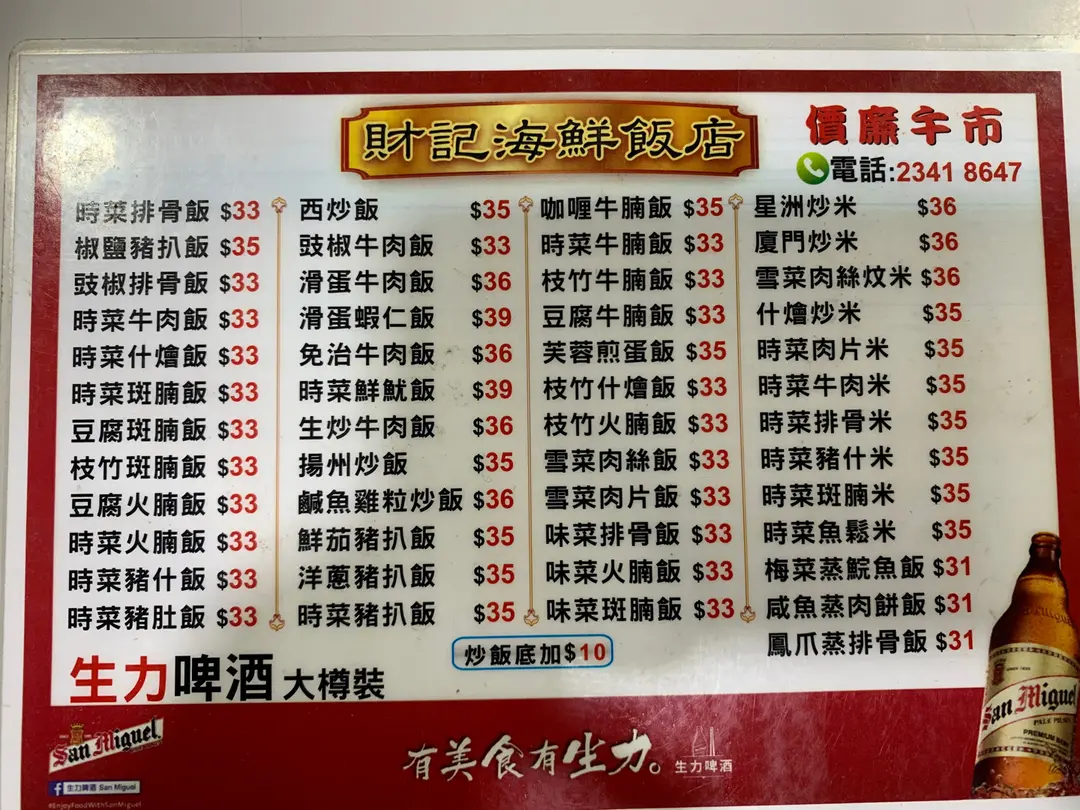 財記海鮮飯店
價廉午市
電話:2341 8647
時菜排骨飯 $33
椒鹽豬扒飯 $35
豉椒排骨飯 $33
時菜牛肉飯 $33
時菜什燴飯 $33
時菜斑腩飯 $33
豆腐斑腩飯 $33
枝竹斑腩飯 $33
豆腐火腩飯 $33
時菜火腩飯 $33
時菜豬什飯 $33
時菜豬肚飯 $33
西炒飯 $35
豉椒牛肉飯 $33
滑蛋牛肉飯 $36
滑蛋蝦仁飯 $39
免治牛肉飯 $36
時菜鮮魷飯 $39
生炒牛肉飯 $36
揚州炒飯 $35
鹹魚雞粒炒飯 $36
鮮茄豬扒飯 $35
洋蔥豬扒飯 $35
時菜豬扒飯 $35
咖喱牛腩飯 $35
時菜牛腩飯 $33
枝竹牛腩飯 $33
豆腐牛腩飯 $33
芙蓉煎蛋飯 $35
枝竹什燴飯 $33
枝竹火腩飯 $33
雪菜肉絲飯 $33
雪菜肉片飯 $33
味菜排骨飯 $33
味菜火腩飯 $33
味菜斑腩飯 $33
星洲炒米 $36
廈門炒米 $36
雪菜肉絲炆米 $36
什燴炒米 $35
時菜肉片米 $35
時菜牛肉米 $35
時菜排骨米 $35
時菜豬什米 $35
時菜斑腩米 $35
時菜魚鬆米 $35
梅菜蒸鯇魚飯 $31
咸魚蒸肉餅飯 $31
鳳爪蒸排骨飯 $31
炒飯底加$10
生力啤酒 大樽裝
San Miguel
生力啤酒 San Miguel
#EnjoyFoodWithSanMiguel
有美食有生力。
生力啤酒
San Miguel
PALE PILSEN
PREMIUM BEER